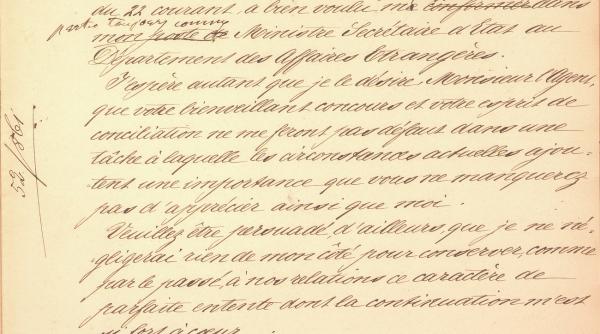 du 22 courant, a bien voulu me confirmer dans
mon poste de Ministre Secrétaire d'Etat au
Département des Affaires Etrangères.
J'espère autant que je le désire, Monsieur l'Agent,
que votre bienveillant concours et votre esprit de
conciliation ne me feront pas défaut dans une
tâche à laquelle les circonstances actuelles ajou-
tent une importance que vous ne manquerez
pas d'apprécier ainsi que moi.
Veuillez être persuadé, d'ailleurs, que je ne né-
gligerai rien de mon côté pour conserver, comme
par le passé, à nos relations ce caractère de
parfaite entente dont la continuation m'est
si fort à cœur.